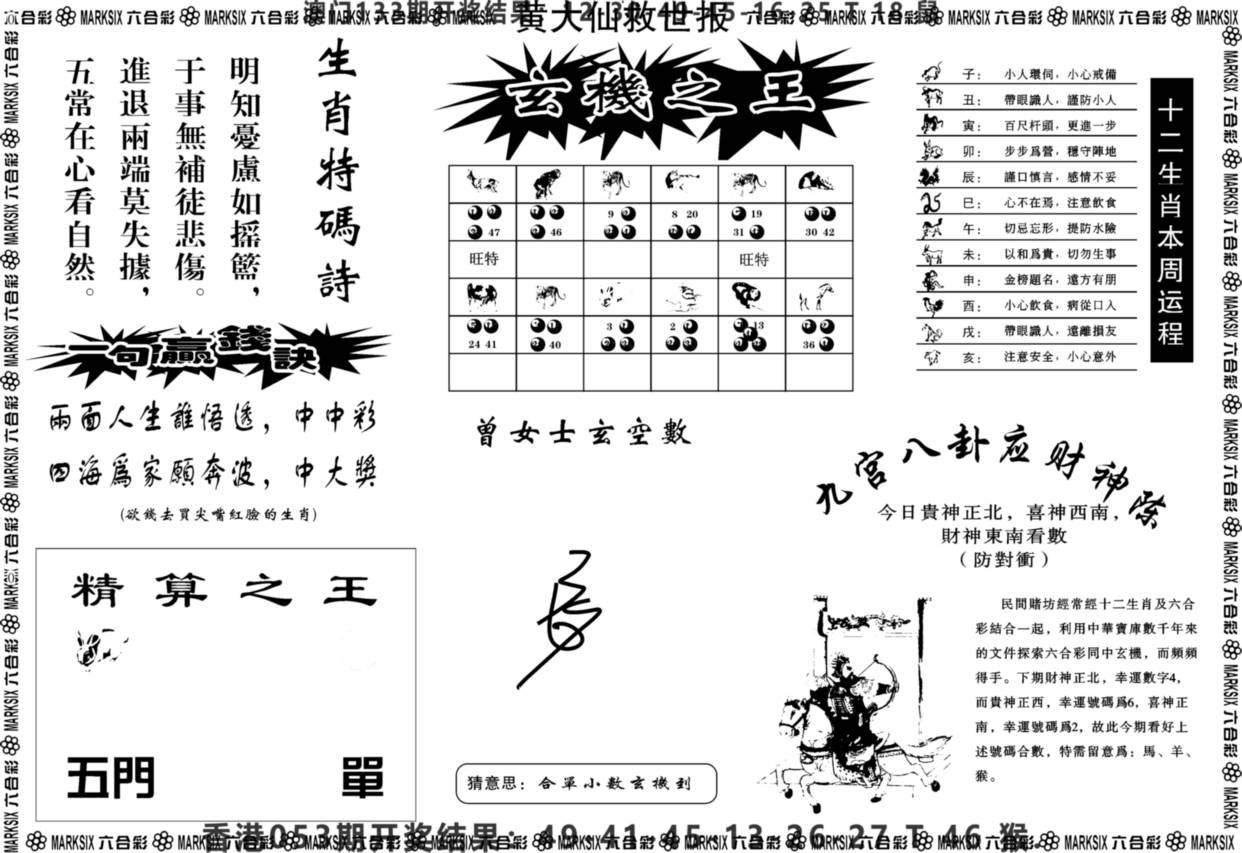 黄大仙救世报
生肖特碼詩
明知憂慮如搖籃，
于事無補徒悲傷。
進退兩端莫失據，
五常在心看自然。
一句贏錢訣
兩面人生誰悟透，中中彩
四海爲家願奔波，中大獎
(欲錢去買尖嘴紅臉的生肖)
精算之王
五門 單
玄機之王
47 46 9 8 20 19 31 30 42
旺特 旺特
24 41 40 3 2 13 36
曾女士玄空數
猜意思：合單小數玄機到
十二生肖本周运程
子：小人環伺，小心戒備
丑：帶眼識人，謹防小人
寅：百尺杆頭，更進一步
卯：步步爲營，穩守陣地
辰：謹口慎言，感情不妥
巳：心不在焉，注意飲食
午：切忌忘形，提防水險
未：以和爲貴，切勿生事
申：金榜題名，遠方有朋
酉：小心飲食，病從口入
戌：帶眼識人，遠離損友
亥：注意安全，小心意外
九宮八卦应财神
今日貴神正北，喜神西南，
財神東南看數
（防對衝）
民間賭坊經常經十二生肖及六合
彩結合一起，利用中華寶庫數千年來
的文件探索六合彩同中玄機，而頻頻
得手。下期財神正北，幸運數字4，
而貴神正西，幸運號碼爲6，喜神正
南，幸運號碼爲2，故此今期看好上
述號碼合數，特需留意爲：馬、羊、
猴。
MARKSIX 六合彩
香港053期开奖结果：49 41 45 13 26 27 T 46 猴